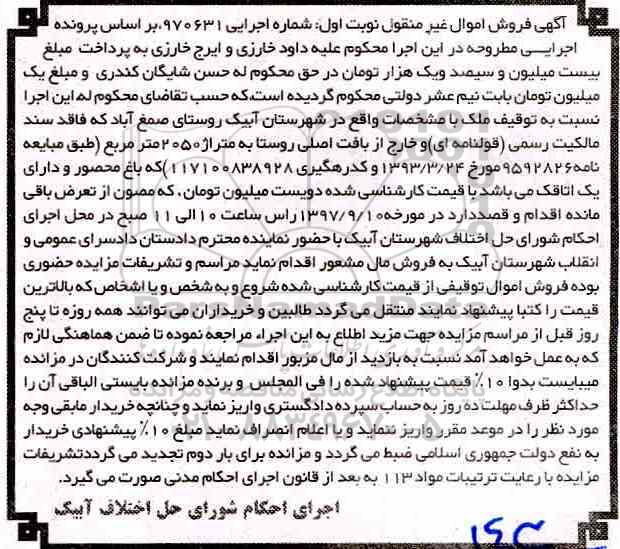 آگهی فروش اموال غیر منقول نوبت اول: شماره اجرایی ۹۷۰۶۳۱،بر اساس پرونده
اجرایـــی مطروحه در این اجرا محکوم علیه داود خارزی و ایرج خارزی به پرداخت مبلغ
بیست میلیون و سیصد ویک هزار تومان در حق محکوم له حسن شایگان کندری و مبلغ یک
میلیون تومان بابت نیم عشر دولتی محکوم گردیده است،که حسب تقاضای محکوم له، این اجرا
نسبت به توقیف ملک با مشخصات واقع در شهرستان آبیک روستای صمغ آباد که فاقد سند
مالکیت رسمی (قولنامه ای)و خارج از بافت اصلی روستا به متراژ ۲۰۵۰متر مربع (طبق مبایعه
نامه۹۵۹۲۸۲۶مورخ ۱۳۹۳/۳/۲۴ و کدرهگیری ۱۱۷۱۰۰۸۳۸۹۲۸)که باغ محصور و دارای
یک اتاقک می باشد با قیمت کارشناسی شده دویست میلیون تومان ، که مصون از تعرض باقی
مانده اقدام و قصددارد در مورخه ۱۳۹۷/۹/۱۰راس ساعت ۱۰ الی ۱۱ صبح در محل اجرای
احکام شورای حل اختلاف شهرستان آبیک با حضور نماینده محترم دادستان دادسرای عمومی و
انقلاب شهرستان آبیک به فروش مال مشعور اقدام نماید مراسم و تشریفات مزایده حضوری
بوده فروش اموال توقیفی از قیمت کارشناسی شده شروع و به شخص و یا اشخاص که بالاترین
قیمت را کتبا پیشنهاد نمایند منتقل می گردد طالبین و خریداران می توانند همه روزه تا پنج
روز قبل از مراسم مزایده جهت مزید اطلاع به این اجراء مراجعه نموده تا ضمن هماهنگی لازم
که به عمل خواهد آمد نسبت به بازدید از مال مزبور اقدام نمایند و شرکت کنندگان در مزائده
میبایست بدوا ۱۰٪ قیمت پیشنهاد شده را فی المجلس و برنده مزائده بایستی الباقی آن را
حداکثر ظرف مهلت ده روز به حساب سپرده دادگستری واریز نماید و چنانچه خریدار مابقی وجه
مورد نظر را در موعد مقرر واریز ننماید و یا اعلام انصراف نماید مبلغ ۱۰٪ پیشنهادی خریدار
به نفع دولت جمهوری اسلامی ضبط می گردد و مزائده برای بار دوم تجدید می گرددتشریفات
مزایده با رعایت ترتیبات مواد ۱۱۳ به بعد از قانون اجرای احکام مدنی صورت می گیرد.
اجرای احکام شورای حل اختلاف آبیک